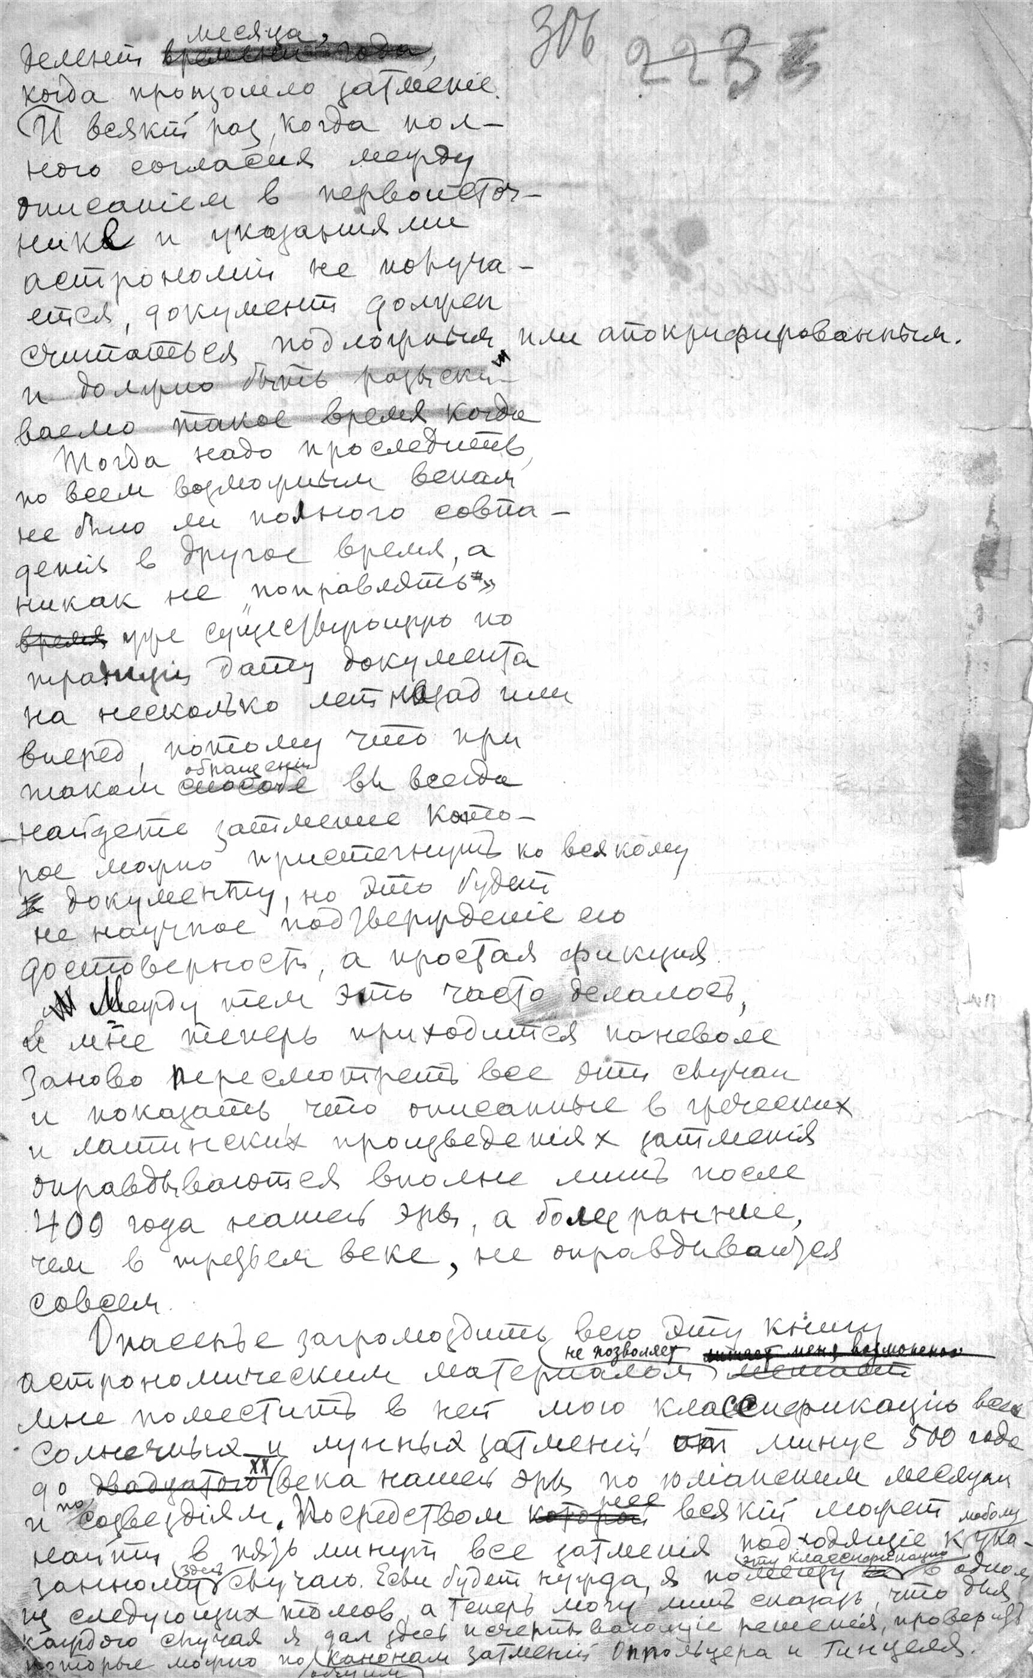 306 223
месяца,
делений времени года,
когда произошло затменіе.
И всякій раз, когда пол-
ного согласия между
описаніем в первоисточ-
нике и указаниями
астрономіи не получа-
ется, документ должен
считаться подложным или апокрифированным.
и должно быть разыски-
ваемо такое время когда
Тогда надо проследить,
по всем возможным векам
не было ли полного совпа-
денія в другое время, а
никак не "поправлять"
время уже существующую по
традиціи дату документа
на несколько лет назад или
вперед, потому что при
обращении
таком способе вы всегда
найдете затмение кото-
рое можно пристегнуть ко всякому
документу, но это будет
не научное подтвержденіе его
достоверности, а простая фикция.
Между тем это часто делалось,
и мне теперь приходится поневоле
заново пересмотреть все эти случаи
и показать что описанные в греческих
и латинских произведеніях затменія
оправдываются вполне лишь после
400 года нашей эры, а более ранние,
чем в третьем веке, не оправдываются
совсем.
Опасенье загромоздить всю эту книгу
не позволяет
астрономическим материалом мешает
мне поместить в ней мою классификацію всех
солнечных и лунных затмений от минус 500 года
XX
до двадцатого века нашей эры по юлианским месяцам
по нее
и созвездіям. Посредством которой всякій может любому
найти в пять минут все затменія подходящіе к ука-
здесь эту классификацию
занному случаю. Если будет нужда, я помещу в одном
из следующих томов, а теперь могу лишь сказать, что для
каждого случая я дал здесь исчерпывающіе решенія, проверить
которые можно по канонам затменій Оппольцера и Гинцеля.